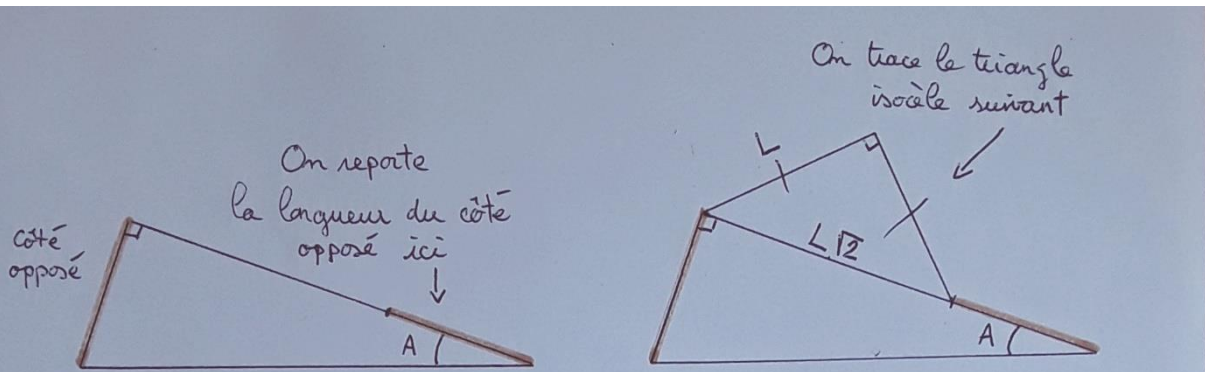 côté
opposé
On reporte
la longueur du côté
opposé ici
A
On trace le triangle
isocèle suivant
L
L√2
A